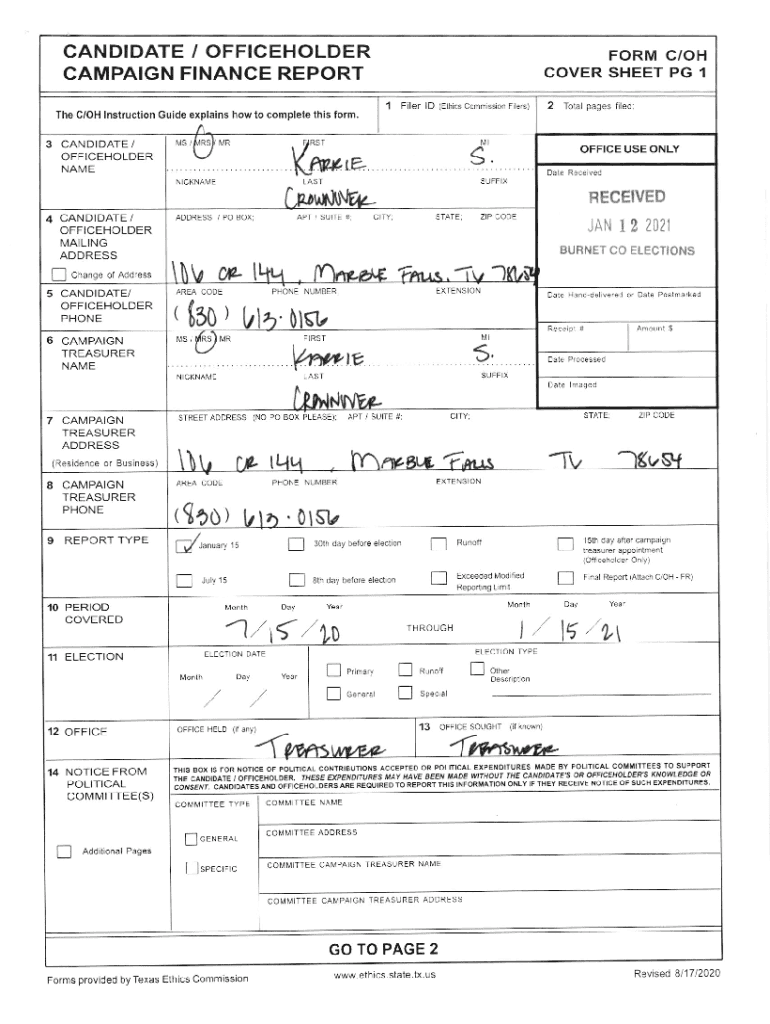 CANDIDATE / OFFICEHOLDER
CAMPAIGN FINANCE REPORT
FORM C/OH
COVER SHEET PG 1
The C/OH Instruction Guide explains how to complete this form.
1 Filer ID (Ethics Commission Filers)
2 Total pages filed:
3 CANDIDATE /
OFFICEHOLDER
NAME
MS / MRS / MR FIRST MI
KARRIE S.
NICKNAME LAST SUFFIX
CROWNOVER
OFFICE USE ONLY
Date Received
RECEIVED
JAN 12 2021
BURNET CO ELECTIONS
4 CANDIDATE /
OFFICEHOLDER
MAILING
ADDRESS
Change of Address
ADDRESS / PO BOX; APT / SUITE #; CITY; STATE; ZIP CODE
106 CR 144, MARBLE FALLS, TX 78654
5 CANDIDATE/
OFFICEHOLDER
PHONE
AREA CODE PHONE NUMBER EXTENSION
(830) 613-0156
Date Hand-delivered or Date Postmarked
Receipt # Amount $
Date Processed
Date Imaged
6 CAMPAIGN
TREASURER
NAME
MS / MRS / MR FIRST MI
KARRIE S.
NICKNAME LAST SUFFIX
CROWNOVER
7 CAMPAIGN
TREASURER
ADDRESS
(Residence or Business)
STREET ADDRESS (NO PO BOX PLEASE); APT / SUITE #; CITY; STATE; ZIP CODE
106 CR 144, MARBLE FALLS TX 78654
8 CAMPAIGN
TREASURER
PHONE
AREA CODE PHONE NUMBER EXTENSION
(830) 613-0156
9 REPORT TYPE
January 15 30th day before election Runoff 15th day after campaign
treasurer appointment
(Officeholder Only)
July 15 8th day before election Exceeded Modified
Reporting Limit
Final Report (Attach C/OH - FR)
10 PERIOD
COVERED
Month Day Year Month Day Year
7/15/20 THROUGH 1/15/21
11 ELECTION
ELECTION DATE ELECTION TYPE
Month Day Year
/ /
Primary Runoff Other
Description
General Special
12 OFFICE
OFFICE HELD (if any)
TREASURER
13 OFFICE SOUGHT (if known)
TREASURER
14 NOTICE FROM
POLITICAL
COMMITTEE(S)
Additional Pages
THIS BOX IS FOR NOTICE OF POLITICAL CONTRIBUTIONS ACCEPTED OR POLITICAL EXPENDITURES MADE BY POLITICAL COMMITTEES TO SUPPORT
THE CANDIDATE / OFFICEHOLDER. THESE EXPENDITURES MAY HAVE BEEN MADE WITHOUT THE CANDIDATE'S OR OFFICEHOLDER'S KNOWLEDGE OR
CONSENT. CANDIDATES AND OFFICEHOLDERS ARE REQUIRED TO REPORT THIS INFORMATION ONLY IF THEY RECEIVE NOTICE OF SUCH EXPENDITURES.
COMMITTEE TYPE COMMITTEE NAME
GENERAL
COMMITTEE ADDRESS
SPECIFIC
COMMITTEE CAMPAIGN TREASURER NAME
COMMITTEE CAMPAIGN TREASURER ADDRESS
GO TO PAGE 2
Forms provided by Texas Ethics Commission www.ethics.state.tx.us Revised 8/17/2020